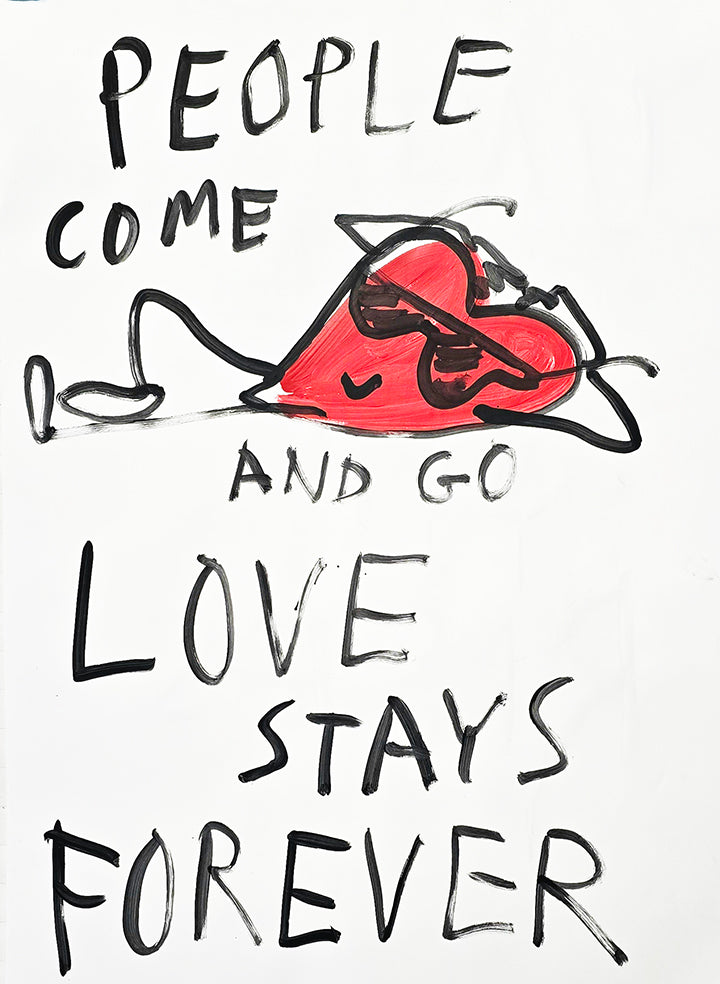 PEOPLE
COME
AND GO
LOVE
STAYS
FOREVER